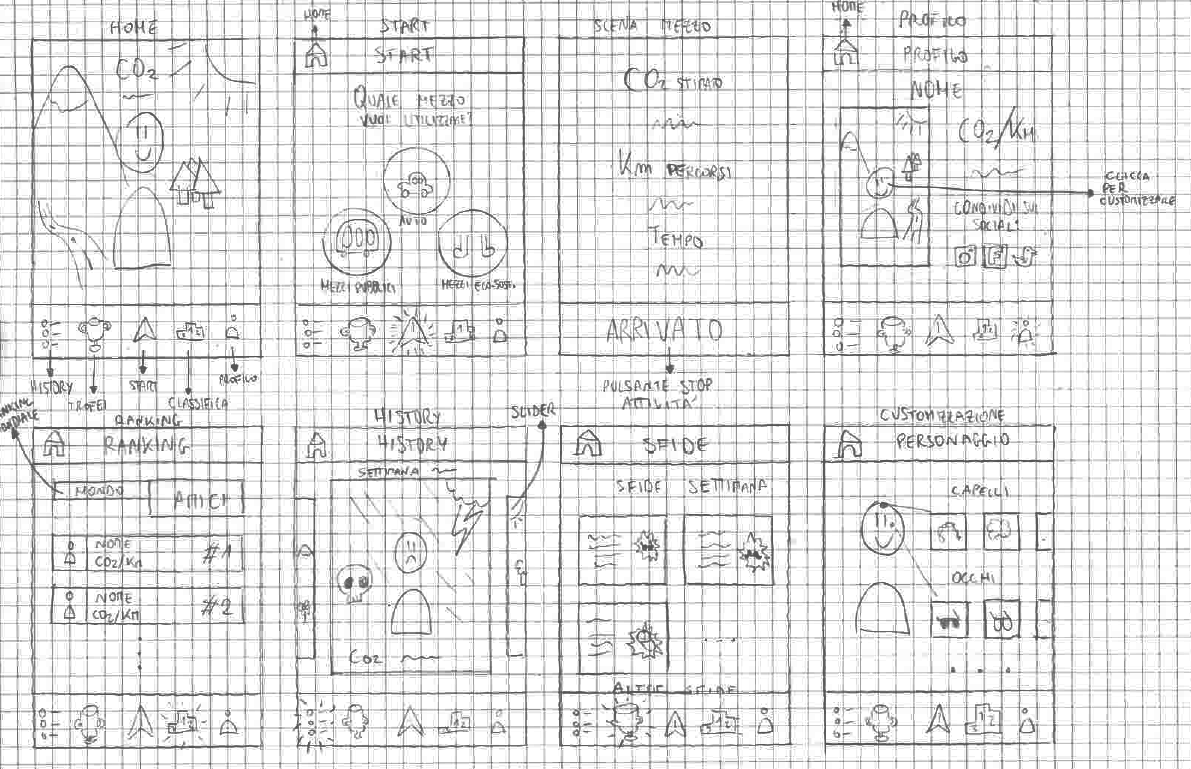 HOME
CO2
HISTORY
TROFEI
START
CLASSIFICA
PROFILO
HOME
START
START
QUALE MEZZO
VUOI UTILIZZARE?
AUTO
MEZZI PUBBLICI
MEZZI ECO-SOST.
SCENA MEZZO
CO2 STIMATO
Km PERCORSI
TEMPO
ARRIVATO
PULSANTE STOP
ATTIVITÀ
HOME
PROFILO
PROFILO
NOME
CO2/KM
CONDIVIDI SUI
SOCIAL:
CLICCA
PER
CUSTOMIZZARE
RANKING
RANKING
MONDO
AMICI
NOME
CO2/Km
#1
NOME
CO2/KM
#2
HISTORY
HISTORY
SLIDER
SETTIMANA
CO2
SFIDE
SFIDE SETTIMANA
ALTRE SFIDE
CUSTOMIZZAZIONE
PERSONAGGIO
CAPELLI
OCCHI